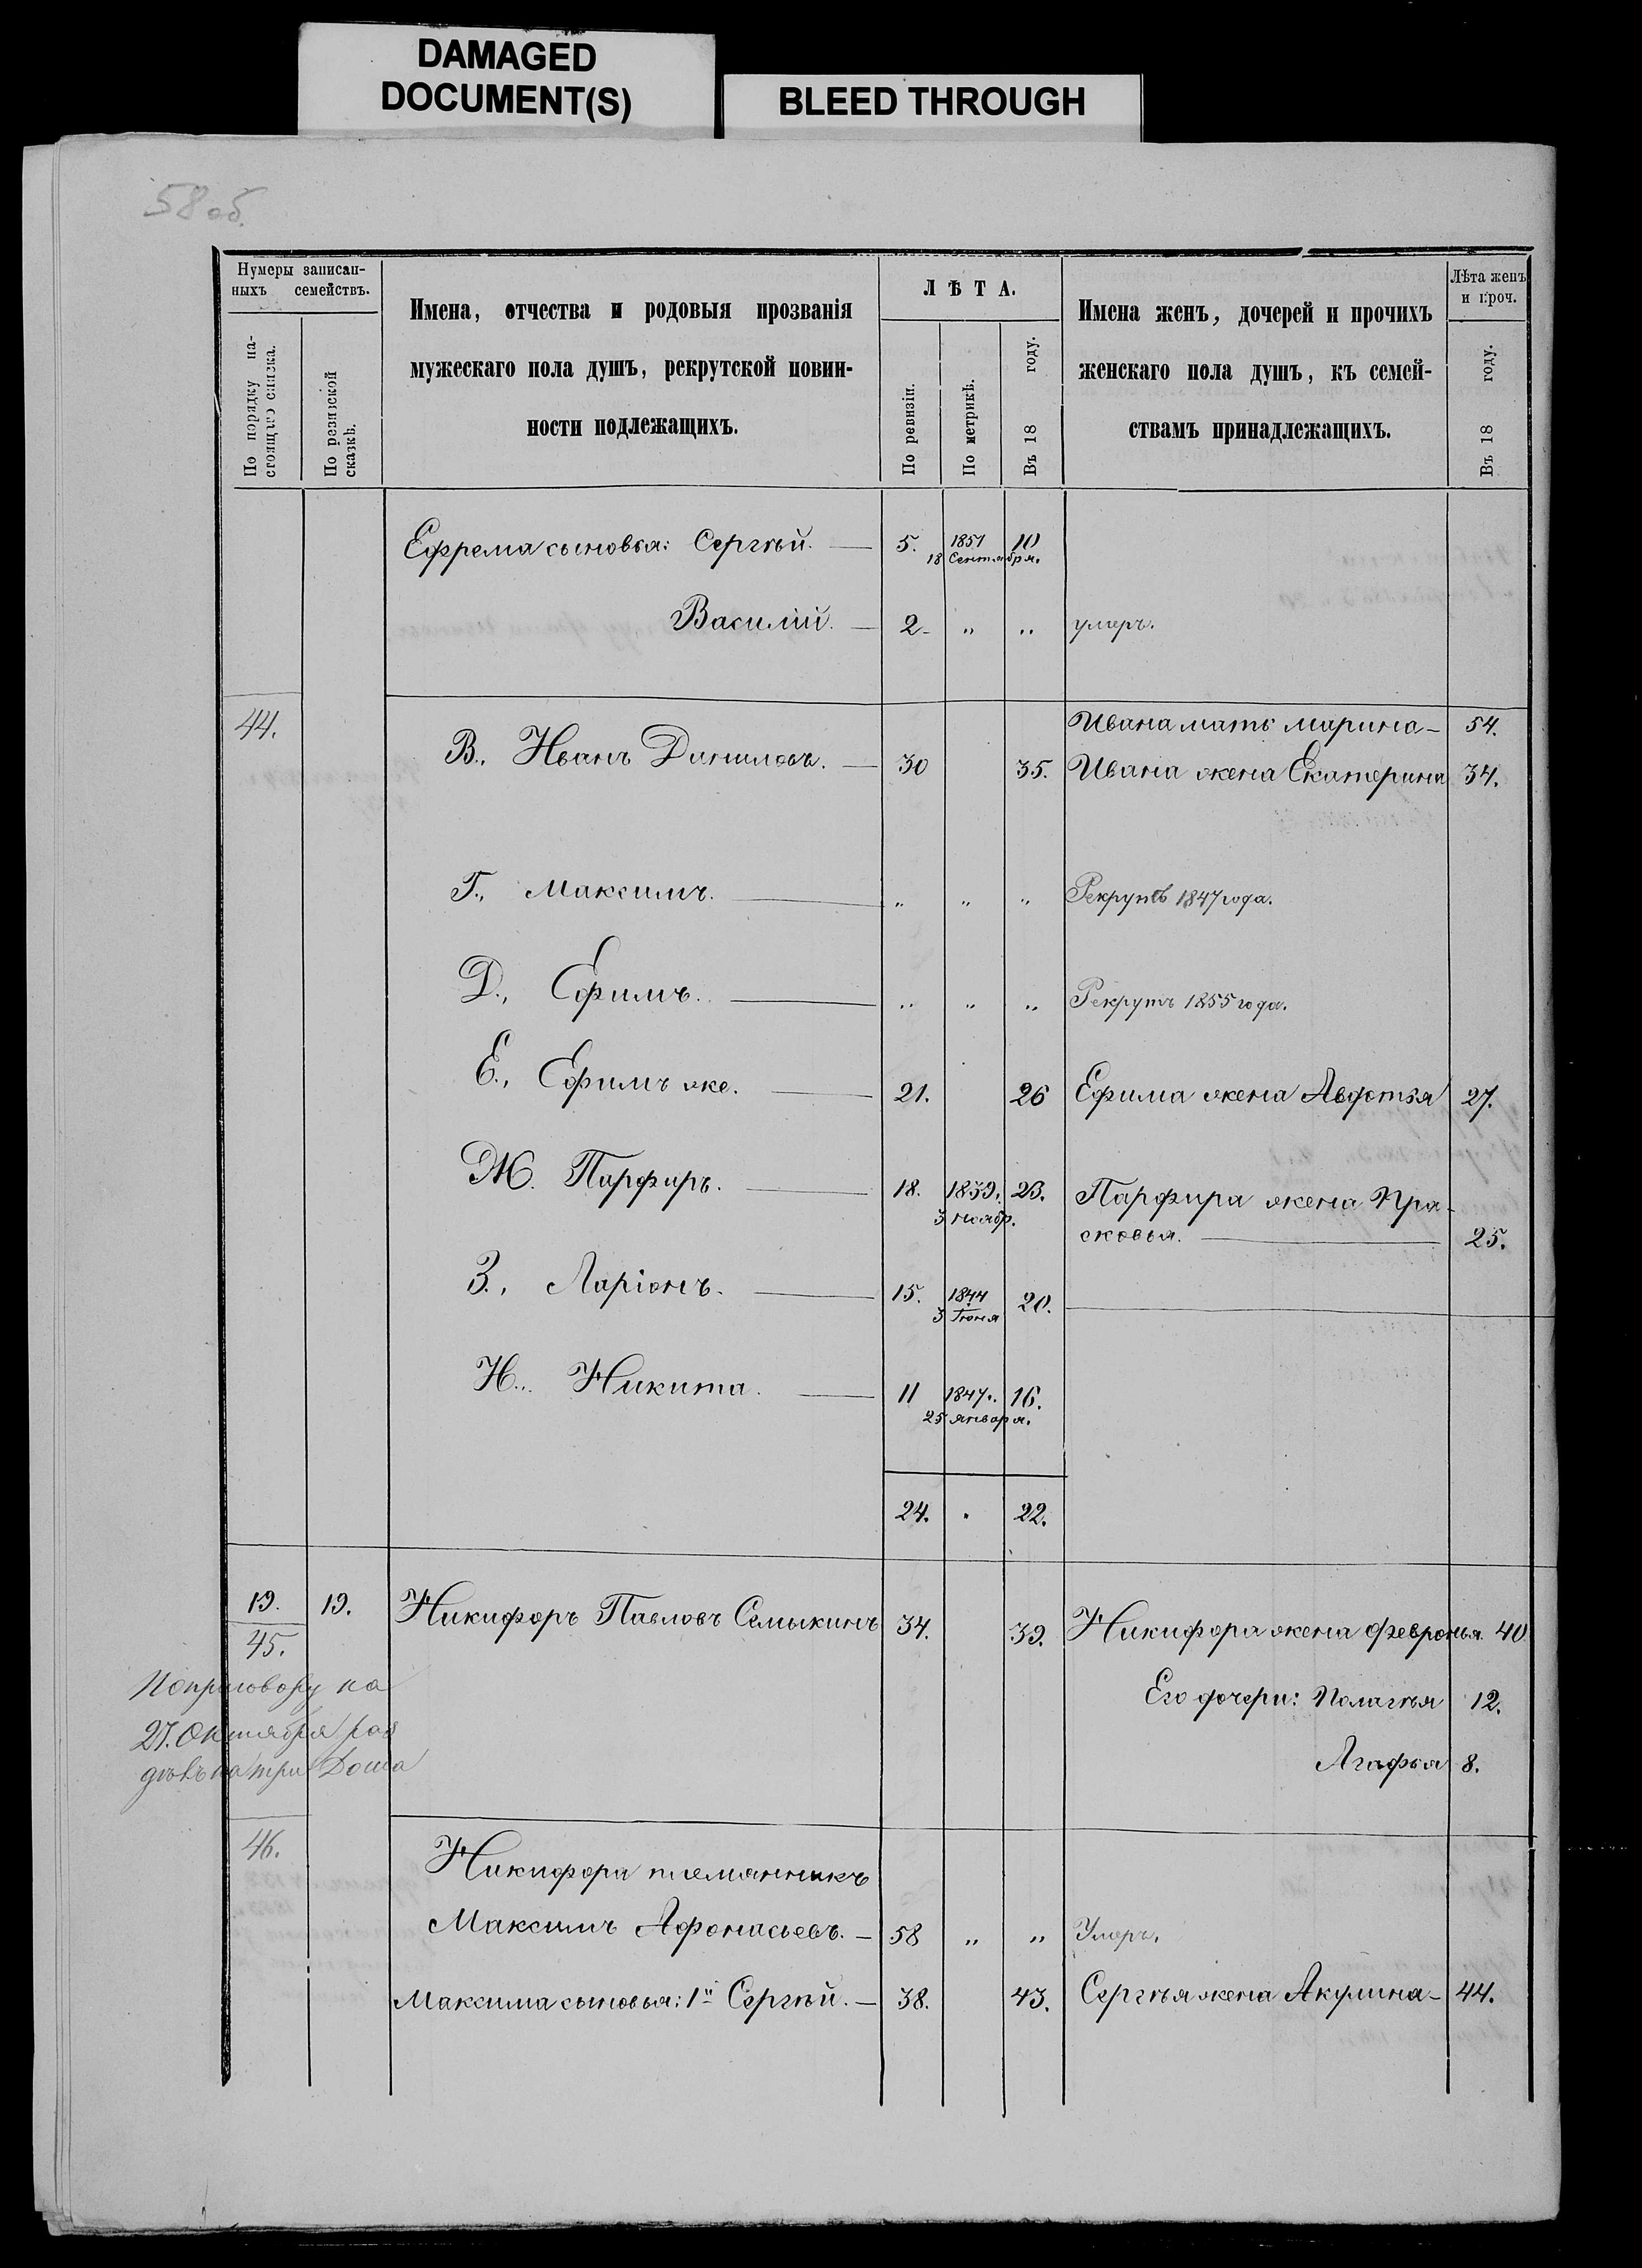 DAMAGED
DOCUMENT(S)
BLEED THROUGH
58 об.
Нумеры записан-
ныхъ семействъ.
По порядку на-
стоящаго списка.
По ревизской
сказкѣ.
Имена, отчества и родовыя прозванія
мужескаго пола душъ, рекрутской повин-
ности подлежащихъ.
ЛѢТА.
По ревизіи.
По метрикѣ.
Въ 18 году.
Имена женъ, дочерей и прочихъ
женскаго пола душъ, къ семей-
ствамъ принадлежащихъ.
Лѣта женъ
и проч.
Въ 18 году.
Ефрема сыновья: Сергѣй. — 5. 1851 10
18 Сентября.
Василій. — 2 - „ „ умеръ.
44.
Ивана мать Марина - 54.
В., Иванъ Даниловъ. — 30 35. Ивана жена Екатерина 34.
Г., Максимъ. — „ „ „ Рекрутъ 1847 года.
Д., Ефимъ. — „ „ „ Рекрутъ 1855 года.
Е., Ефимъ же. — 21. 26 Ефима жена Авдотья 27.
Ж. Парфиръ. — 18. 1839. 23. Парфира жена Пра-
3 Ноябр. сковья. — 25.
З., Ларіонъ. — 15. 1844 20.
3 Іюня
И.. Никита. — 11 1847. 16.
25 Января.
24. „ 22.
19. 19. Никифоръ Павловъ Семыкинъ 34. 39. Никифора жена Февронья 40
45.
По приговору на
27. Октября раз
дѣлъ на три Дома
Его дочери: Палагѣя 12.
Агафья 8.
46.
Никифора племянникъ
Максимъ Афонасьевъ. — 58 „ „ Умеръ.
Максима сыновья: 1й Сергѣй. — 38. 43. Сергѣя жена Акулина - 44.